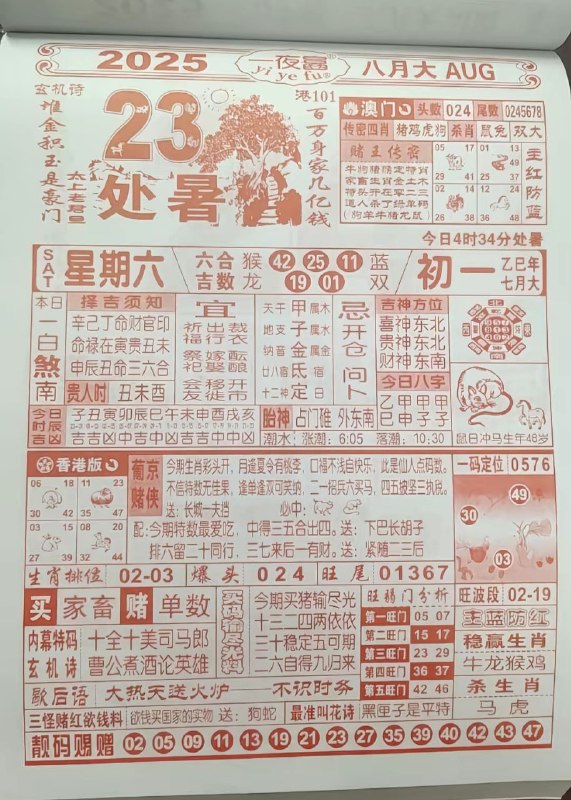 2025
一夜富
yi ye fu®
八月大 AUG
玄机诗
堆金积玉是豪门
太上老君曰
23
处暑
港101
百万身家几亿钱
澳门
头数
024
尾数
0245678
传密四肖
猪鸡虎狗
杀肖
鼠兔
双大
赌王传密
道人杀丁绿单码
(狗羊牛猪龙鼠)
05 17
29 41
01 13
49
25 37
02 14
26 38
12 24
36 48
主红防蓝
今日4时34分处暑
SAT
星期六
六合
吉数
猴
龙
42 25 11
19 01
蓝
双
初一
乙巳年
七月大
本日
一白
煞
南
择吉须知
辛己丁命财官印
命禄在寅贵丑未
申辰丑命三六合
贵人时
丑未酉
宜
祈福 出行 裁衣
祭祀 嫁娶 酝酿
会友 移徙 开市
天干 甲 属木
地支 子 属水
纳音 金 属金
廿八宿 氐 宿
十二神 定 日
忌
开仓
问卜
吉神方位
喜神东北
贵神东北
财神东南
今日八字
乙甲甲甲
巳申子子
今日时辰吉凶
子丑寅卯辰巳午未申酉戌亥
胎神
占门碓 外东南
潮水: 涨潮: 6:05 落潮: 10:30
鼠日冲马生年48岁
香港版
06 18
30 42
11 23
47
03 15
27 39
08 20
32 44
葡京赌侠
今期生肖彩头开，月逢夏令有桃李，口福不浅自快乐，此是仙人点码数。
不信特数无佳果，逢单逢双可笑纳，二一招兵六买马，四五披坚三执锐。
送: 长城一夫挡 必中:
配: 今期特数最爱吃，中得三五合出四。送: 下巴长胡子
排六留二十同行，三七来后一有财。送: 紧随二三后
一码定位
0576
49
30
03
生肖排位
02-03
爆头
024
旺尾
01367
买
家畜
赌
单数
内幕特码
十全十美司马郎
玄机诗
曹公煮酒论英雄
今期买猪输尽光
十三二四两依依
三十稳定五可期
二六自得九归来
旺弱门分析
第一旺门 05 07
第二旺门 15 17
第三旺门 23 29
第四旺门 36 37
第五旺门 42 46
旺波段
02-19
主蓝防红
稳赢生肖
牛龙猴鸡
杀生肖
马虎
歇后语
大热天送火炉
不识时务
三怪赌红欲钱料
欲钱买国家的实物 送: 狗蛇
最准叫花诗
黑匣子是平特
靓码赐赠
02 05 09 11 13 19 21 23 29 31 35 39 40 42 43 47